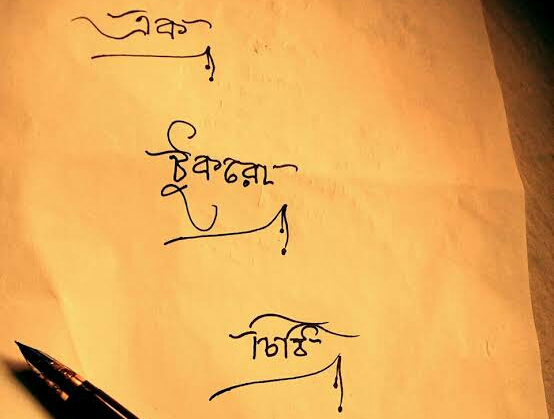 এক
টুকরো
চিঠি